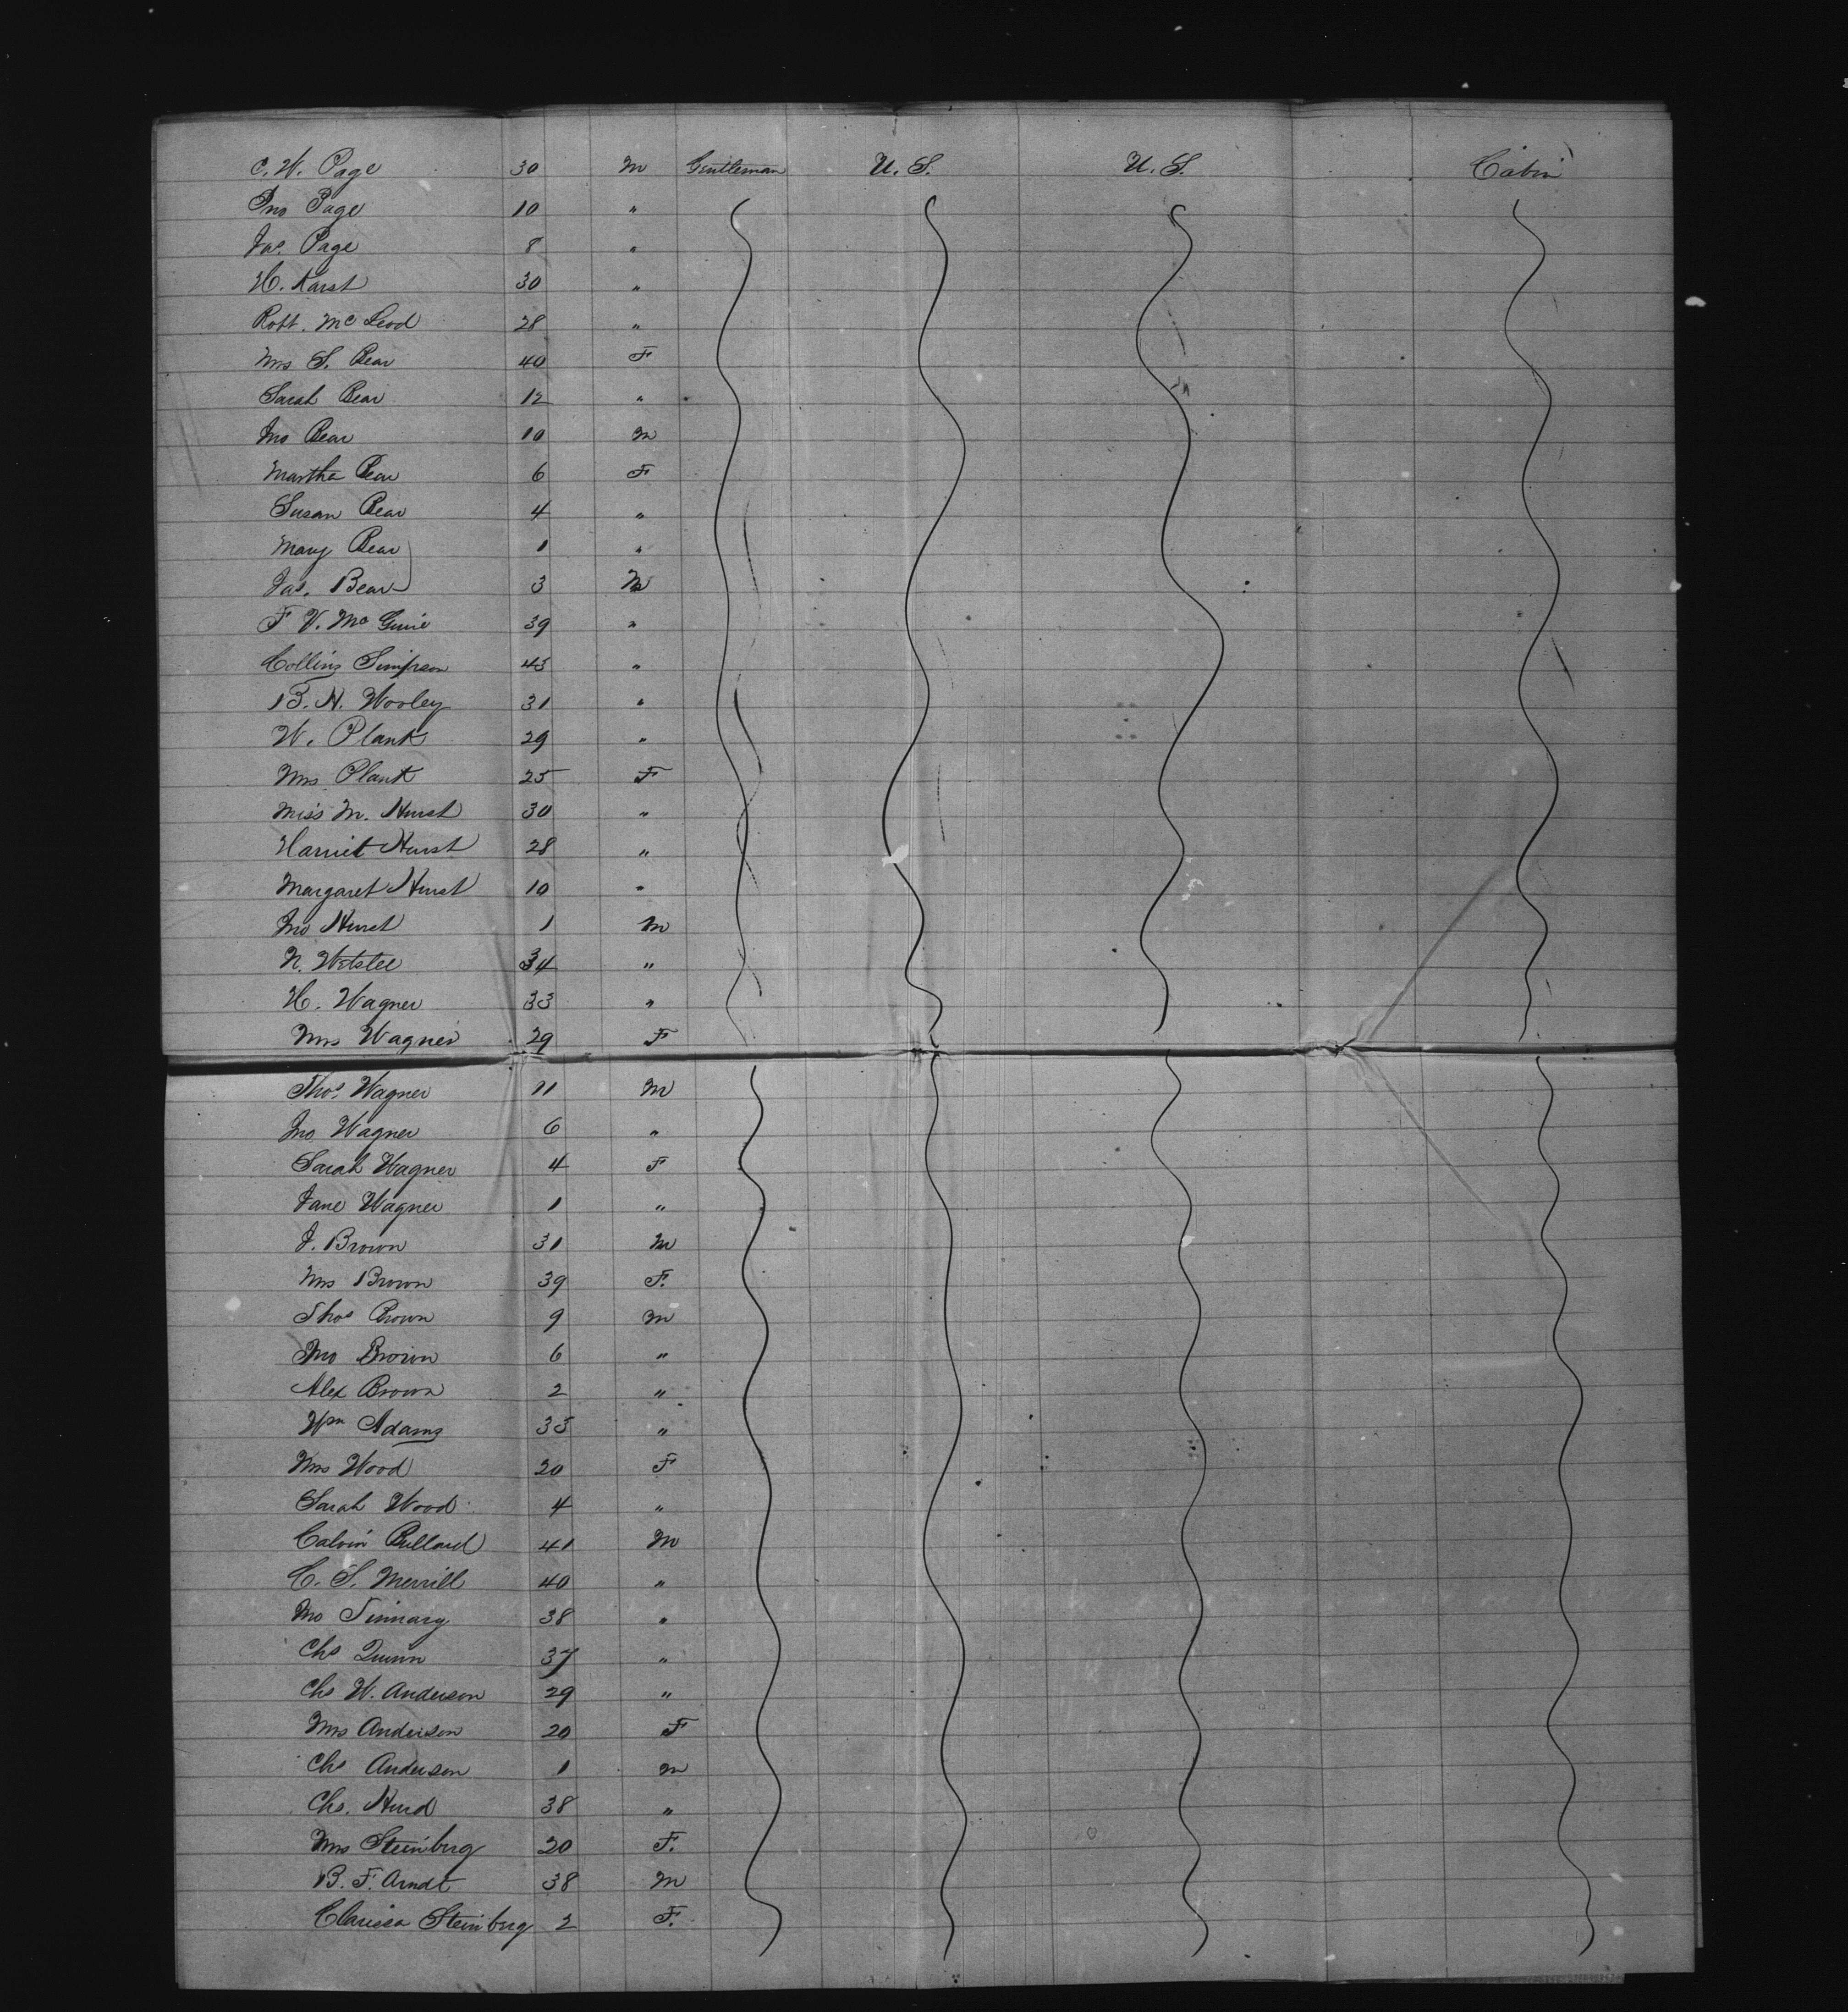 C. W. Page 30 M Gentleman U. S. U. S. Cabin
Jno Page 10 "
Jas. Page 8 "
H. Karst 30 "
Robt. McLeod 28 "
Mrs S. Bear 40 F
Sarah Bear 12 "
Jno Bear 10 M
Martha Bear 6 F
Susan Bear 4 "
Mary Bear 1 "
Jas. Bear 3 M
F V. McGuire 39 "
Collins Simpson 43 "
B. N. Wooley 31 "
W. Plank 29 "
Mrs Plank 25 F
Miss M. Hurst 30 "
Harriet Hurst 28 "
Margaret Hurst 10 "
Jno Hurst 1 M
N. 34 "
H. Wagner 33 "
Mrs Wagner 29 F
Thos. Wagner 11 M
Jno Wagner 6 "
Sarah Wagner 4 F
Jane Wagner 1 "
J. Brown 31 M
Mrs Brown 39 F.
Thos Brown 9 M
Jno Brown 6 "
Alex Brown 2 "
Wm Adams 35 "
Mrs Wood 20 F
Sarah Wood 4 "
Calvin Bullard 41 M
C. S. Merrill 40 "
38 "
Chs Quinn 37 "
Chs W. Anderson 29 "
Mrs Anderson 20 F
Chs Anderson 1 M
Chs. Hurd 38 "
Mrs Steinberg 20 F.
B. F. Arndt 38 M
Clarissa Steinberg 2 F.